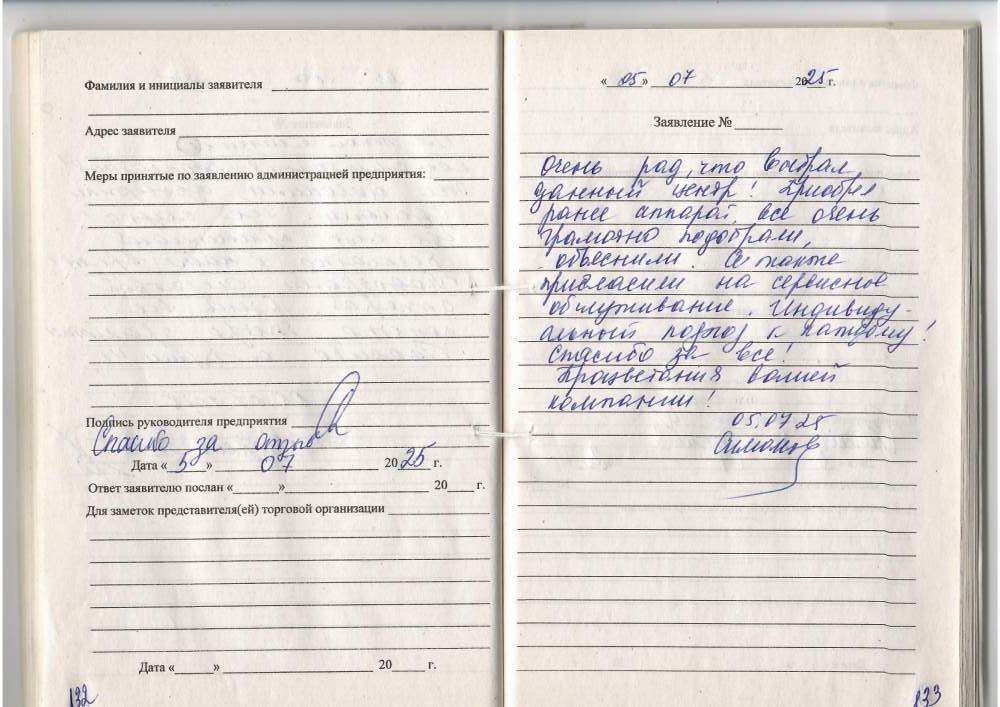 Фамилия и инициалы заявителя
Адрес заявителя
Меры принятые по заявлению администрацией предприятия:
Подпись руководителя предприятия
Спасибо за отзыв
Дата «5» 07 2025 г.
Ответ заявителю послан «    »     20   г.
Для заметок представителя(ей) торговой организации
Дата «    »     20   г.
132
«05» 07 2025 г.
Заявление №
Очень рад, что выбрал
данный центр! Приобрел
ранее аппарат, все очень
грамотно подобрали,
объяснили. А также
пригласили на сервисное
обслуживание. Индивиду-
альный подход к каждому!
Спасибо за все!
Процветания вашей
компании!
05.07.25
133